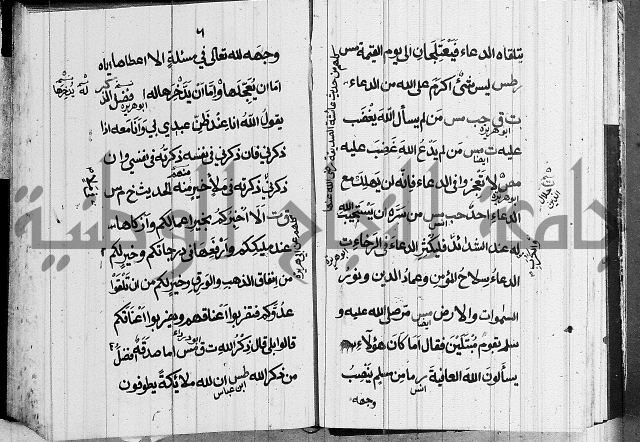 يتلقاه الدعاء فيعتلجان الى يوم القيمة مس
رطس ليس شئ اكرم على الله من الدعاء
ت ق حب مس من لم يسأل الله يغضب
ابو هريرة
عليه ت مس من لم يدع الله غضب عليه
ايضا
مص لا تعجزوا فى الدعاء فانه لن يهلك مع
الدعاء احد حب مس من سره ان يستجيب الله
له عند الشدائد فليكثر الدعاء فى الرخاء ت
ابو هريرة
الدعاء سلاح المؤمن وعماد الدين ونور
السموات والارض مس مر صلى الله عليه و
ايضا
سلم بقوم مبتلين فقال اما كان هؤلاء
يسألون الله العافية ر ما من مسلم ينصب
انس
وجهه
٦
وجهه لله تعالى في مسئلة الا اعطاها اياه
اما ان يعجلها واما ان يدخرها له
ابو هريرة
فضل الذكر
يقول الله انا عند ظن عبدي بي وانا معه اذا
ذكرني فان ذكرني في نفسه ذكرته في نفسي وان
ذكرني ذكرته في ملأ خير منه الحديث خ م س
ت ق الا اخبركم بخير اعمالكم وازكاها
عند مليككم وارفعها في درجاتكم وخير لكم
من انفاق الذهب والورق وخير لكم من ان تلقوا
عدوكم فتضربوا اعناقهم ويضربوا اعناقكم
قالوا بلى قال ذكر الله ت ق مس اما صدقة افضل
ابو درداء
من ذكر الله طس ان لله ملائكة يطوفون
ابن عباس
جامعة النجاح الوطنية